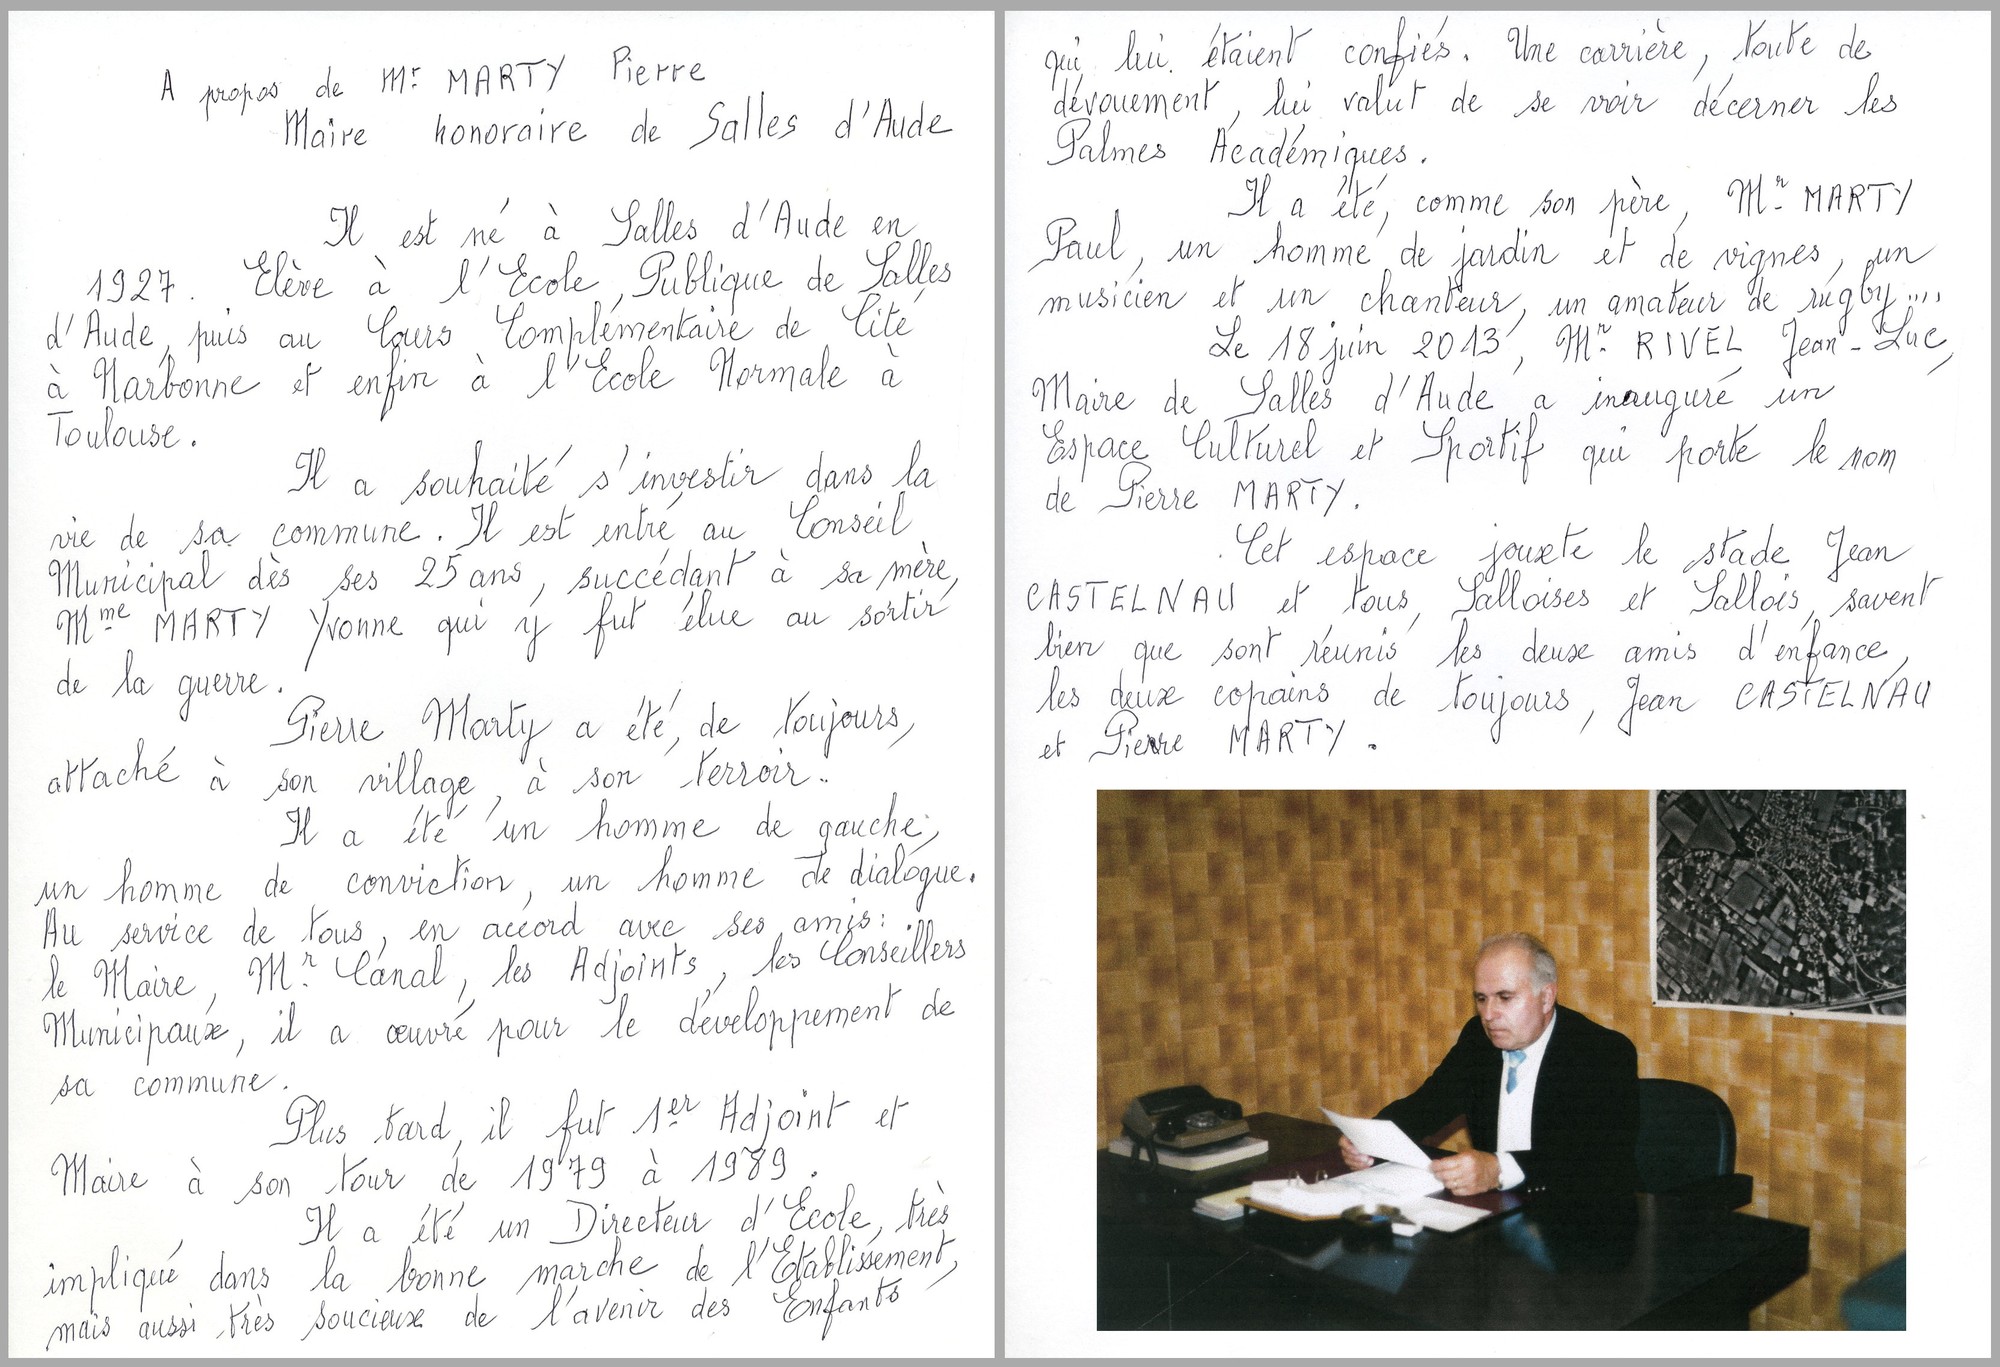 A propos de Mr MARTY Pierre
Maire honoraire de Salles d'Aude
Il est né à Salles d'Aude en
1927. Elève à l'Ecole Publique de Salles
d'Aude, puis au Cours Complémentaire de Cité
à Narbonne et enfin à l'Ecole Normale à
Toulouse.
Il a souhaité s'investir dans la
vie de sa commune. Il est entré au Conseil
Municipal dès ses 25 ans, succédant à sa mère,
Mme MARTY Yvonne qui y fut élue au sortir
de la guerre.
Pierre Marty a été, de toujours,
attaché à son village, à son terroir..
Il a été un homme de gauche,
un homme de conviction, un homme de dialogue.
Au service de tous, en accord avec ses amis:
le Maire, Mr Canal, les Adjoints, les Conseillers
Municipaux, il a œuvré pour le développement de
sa commune.
Plus tard, il fut 1er Adjoint et
Maire à son tour de 1979 à 1989.
Il a été un Directeur d'Ecole, très
impliqué dans la bonne marche de l'Etablissement,
mais aussi très soucieux de l'avenir des Enfants
qui lui étaient confiés. Une carrière, toute de
dévouement, lui valut de se voir décerner les
Palmes Académiques.
Il a été, comme son père, Mr MARTY
Paul, un homme de jardin et de vignes, un
musicien et un chanteur, un amateur de rugby....
Le 18 juin 2013, Mr RIVEL Jean-Luc,
Maire de Salles d'Aude a inauguré un
Espace Culturel et Sportif qui porte le nom
de Pierre MARTY.
Cet espace jouxte le stade Jean
CASTELNAU et tous, Salloises et Sallois, savent
bien que sont réunis les deux amis d'enfance,
les deux copains de toujours, Jean CASTELNAU
et Pierre MARTY.